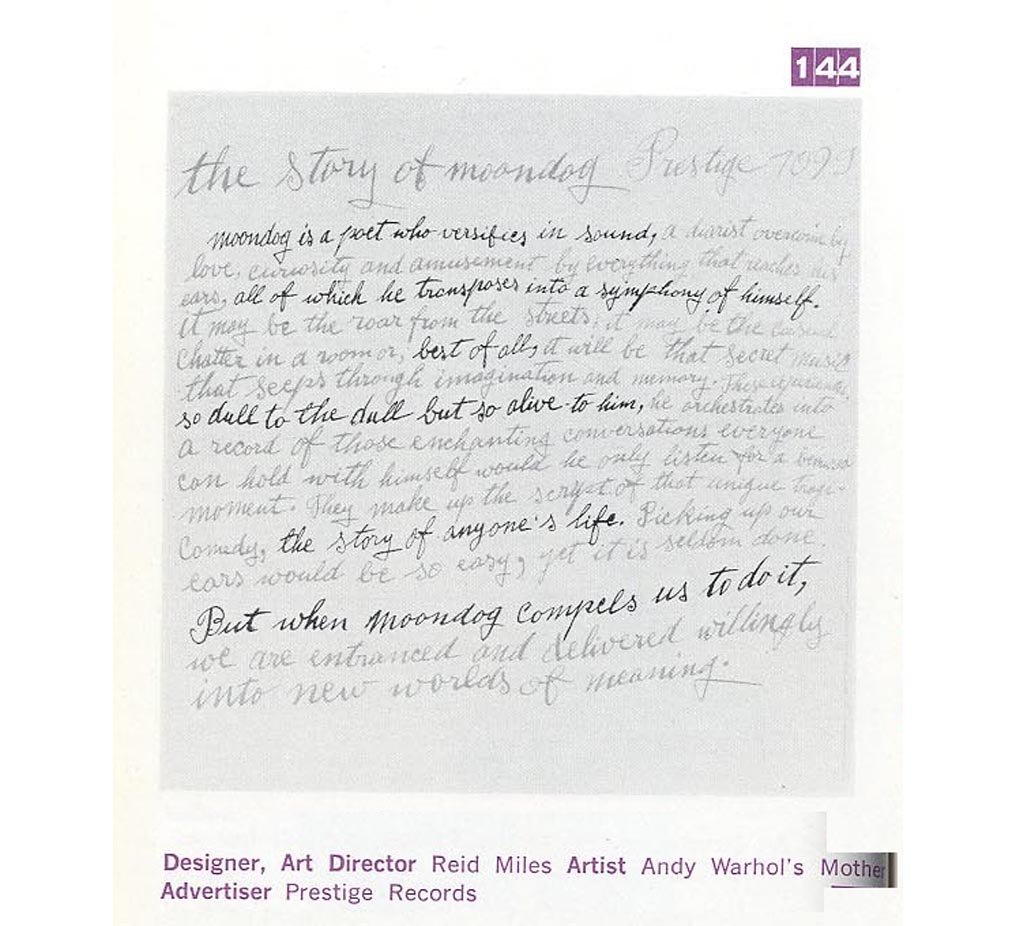 144
the story of moondog Prestige 7099
moondog is a poet who versifies in sound, a diarist overcome by
love, curiosity and amusement by everything that reaches his
ears, all of which he transposes into a symphony of himself.
It may be the roar from the streets, it may be the
chatter in a room or, best of all, it will be that secret music
that seeps through imagination and memory. These experiences,
so dull to the dull but so alive to him, he orchestrates into
a record of those enchanting conversations everyone
can hold with himself would he only listen for a
moment. They make up the script of that unique tragi-
Comedy, the story of anyone's life. Picking up our
ears would be so easy, yet it is seldom done.
But when moondog compels us to do it,
we are entranced and delivered willingly
into new worlds of meaning.
Designer, Art Director Reid Miles Artist Andy Warhol's Mother
Advertiser Prestige Records